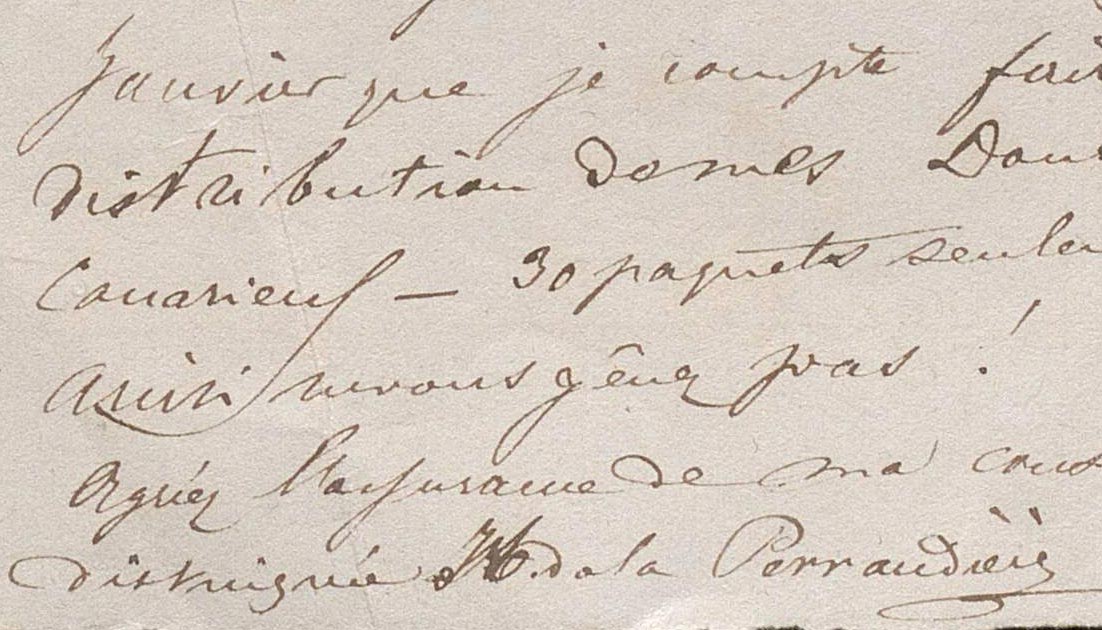 Janvier que je compte fair
distribution de mes Dou
Canarieus — 30 paquets seule
ainsi ne vous gênez pas !
Agréez l'assurance de ma cons
distinguée H. de la Perraudière